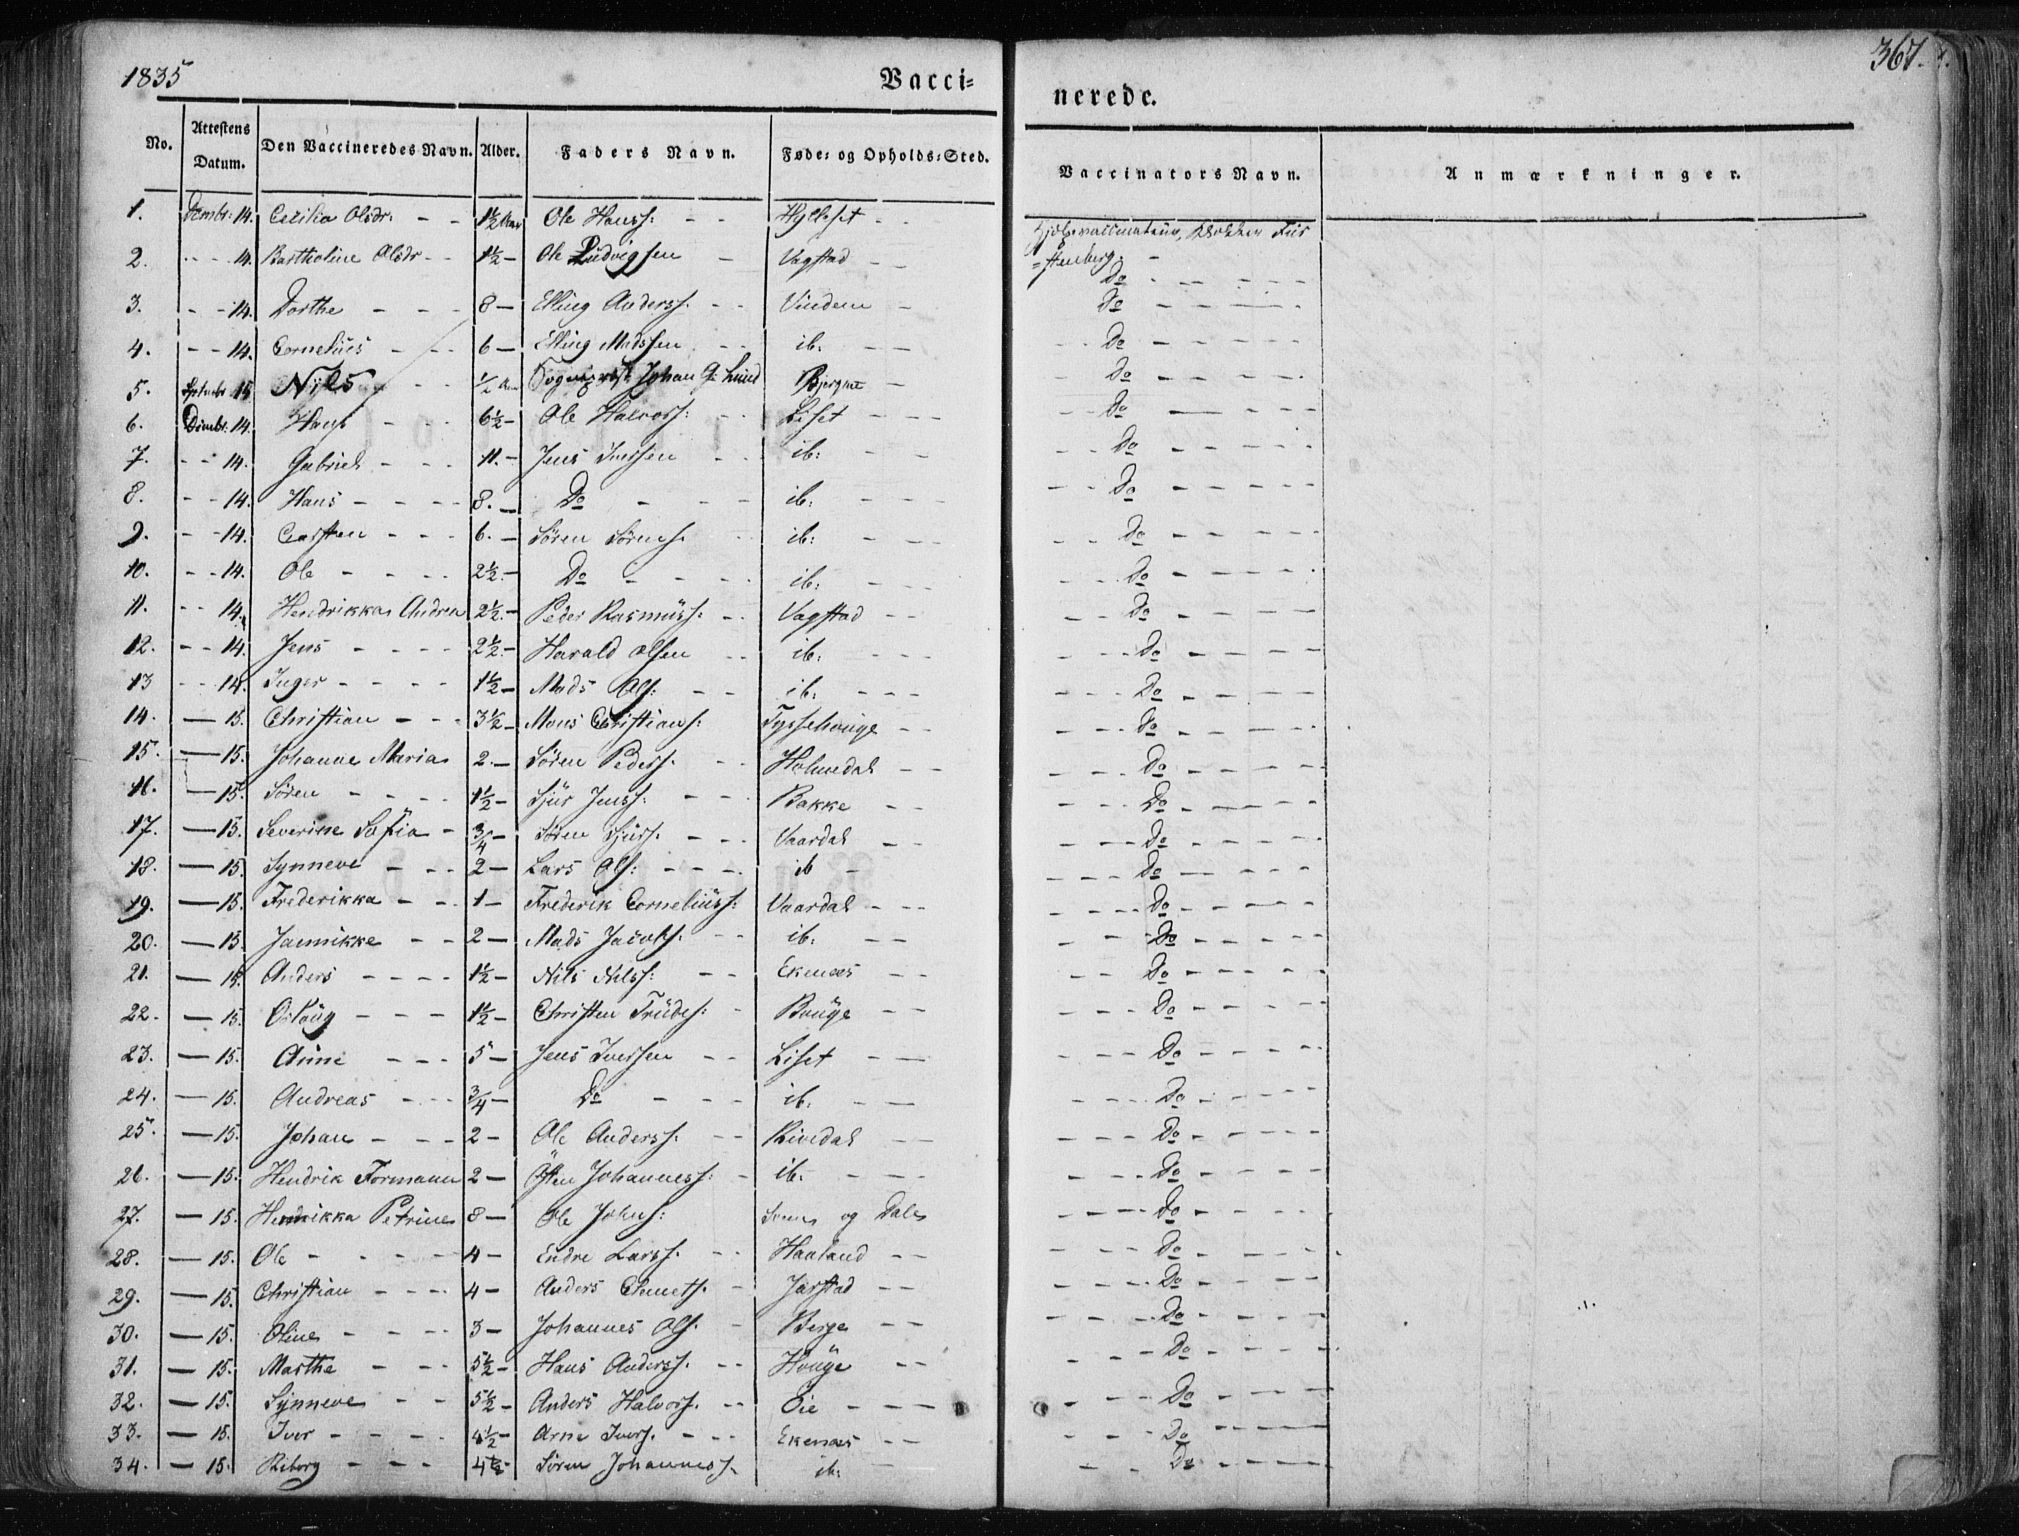 1835
Vacci=
nerede.
367.
No. Attestens Datum. Den Vaccineredes Navn. Alder. Faders Navn. Føde= og Opholds=Sted. Vaccinators Navn. Anmærkninger.
1. Dcmbr: 14. Cecilia Olsdr: - - 1½ Aar Ole Hanss: - - Hylleset - Hjelpevaccinateur, Klokker Fürstenberg. -
2. - - 14. Bartholine Olsdr - - 1½ - Ole Ludvigsen - Vagstad - - Do - - - -
3. - - 14. Dorthe - - - 8 - Elling Anderss. - - Vindem - Do - - - -
4. - - 14. Cornelius - - - 6 - Elling Madssen - - ib: - - - - Do - - - -
5. Septembr 15 Nils - - ½ Aar Johan G: Lund - - Do - - - -
6. Dcmbr: 14. Hans - - - 6½ - Ole Halvors: - - Liset - - - - - Do - - - -
7. - - 14. Gabriel - - - 11. - Jens Iverssen - - ib: - - - - Do - - - -
8. - - 14. Hans - - - - 8. - Do - - - ib: - - - - - Do - - - -
9. - - 14. Carsten - - - 6. - Søren Sørens. - ib: - - - - - Do - - - -
10. - - 14. Ole - - - - 2½. - Do - - - - ib: - - - - Do - - - -
11. - - 14. Hendrikka Andrea 2½. - Peder Rasmuss: - - Vagstad - - - - Do - - - -
12. - - 14. Jens - - - - 2½. - Harald Olsen - - ib: - - - - - Do - - - -
13 - - 14. Inger - - - - 1½ - Mads Ols: - - ib: - - - - - Do - - - -
14. - 15. Christian - - - 3½ - Mons Christians: Tyssehouge - - - - Do - - - -
15. - 15. Johanne Maria 2. - Søren Peders. - - Holmedal - - - - Do - - - -
16. - 15. Søren - - - - 1½ - Sjur Jenss: - - - Bakke - - - - Do - - - -
17. - 15. Severine Sofia - ¾ - Søren Sjurs: - - - Vaardal - - - - Do - - - -
18. - 15. Synneve - - - 2 - Lars Ols: - - - - ib - - - Do - - - -
19. - 15. Frederikka - - - 1 - Frederik Corneliuss: Vaardal - - - - - - Do - - - -
20. - 15. Jannikke - - 2 - Mads Jacobs. - - ib: - - - - Do - - - -
21. - 15. Anders - - - - 1½ - Nils Nilss: - - Ekenæs - - - - Do - - - -
22. - 15. - - - 1½ - Christen Trudes: - Bouge - - - - Do - - - -
23. - 15. Anne - - - 5 - Jens Iverssen - - Liset - - - - Do - - - -
24. - 15. Andreas - - - ¾ - Do - - - ib. - - - - Do - - - -
25. - 15. Johan - - - - 2 - Ole Anderss. - - Rivedal - - - - Do - - - -
26. - 15. Hendrik Formann 2 - Østen Johanness: - ib. - - - - - Do - - - -
27. - 15. Hendrikka Petrine 8 - Ole Johns: og Dale - - - Do - - - -
28. - 15. Ole - - - - 4 - Endre Larss. - - Haaland - - - - - Do - - - -
29. - 15. Christian - - - - 4 - Anders Clemets. - Jarstad - - - - - Do - - - -
30. - 15. Oline - - - - 3 - Johannes Ols. - Berge - - - - Do - - - -
31. - 15. Marthe - - - 5½ - Hans Anderss. - - Houge - - - - - Do - - - -
32. - 15. Synneve - - 5½ - Anders Halvors. - - Eie - - - - - Do - - - -
33. - 15. Iver - - - - 4½ - Arne Ivers. - - - Ekenæs - - - - Do - - - -
34. - 15. Riborg - - - 4½ - Søren Johanness. ib: - - - Do - - - -